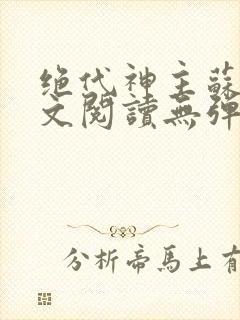 绝代神主蘇
文閱讀無彈
分析帝馬上有